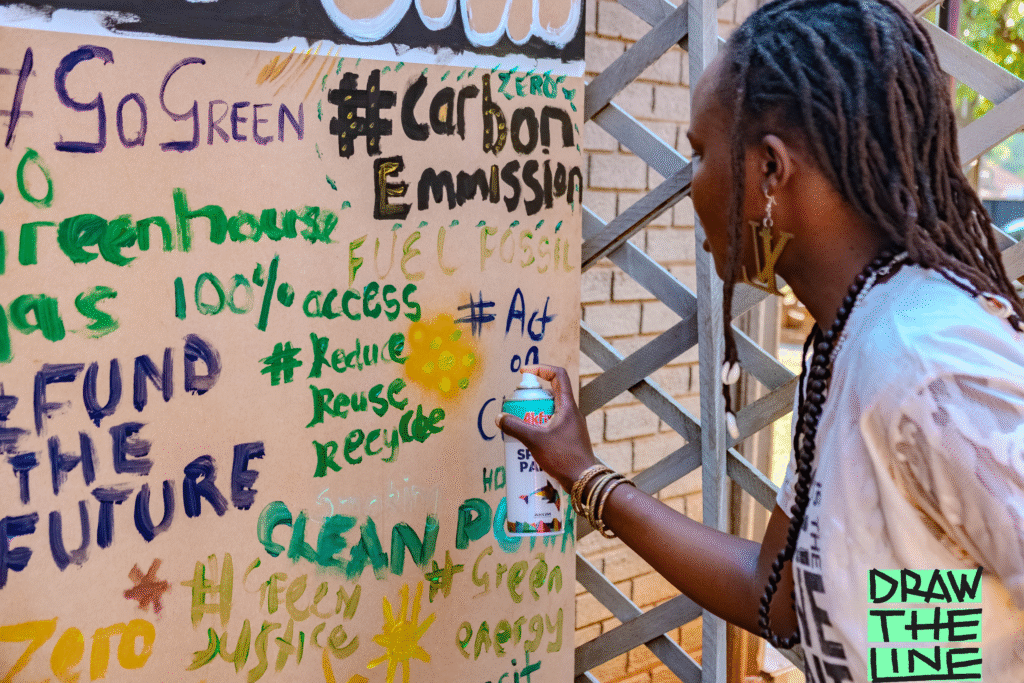 #GO GREEN
ZERO
#Carbon
Emmission
O
Greenhouse
gas
FUEL FOSSIL
100% access
#Act
on
#Reduce
Reuse
Recycle
#FUND
THE
FUTURE
SPRAY
CLEAN
#Green
Justice
#Green
energy
Zero
DRAW
THE
LINE